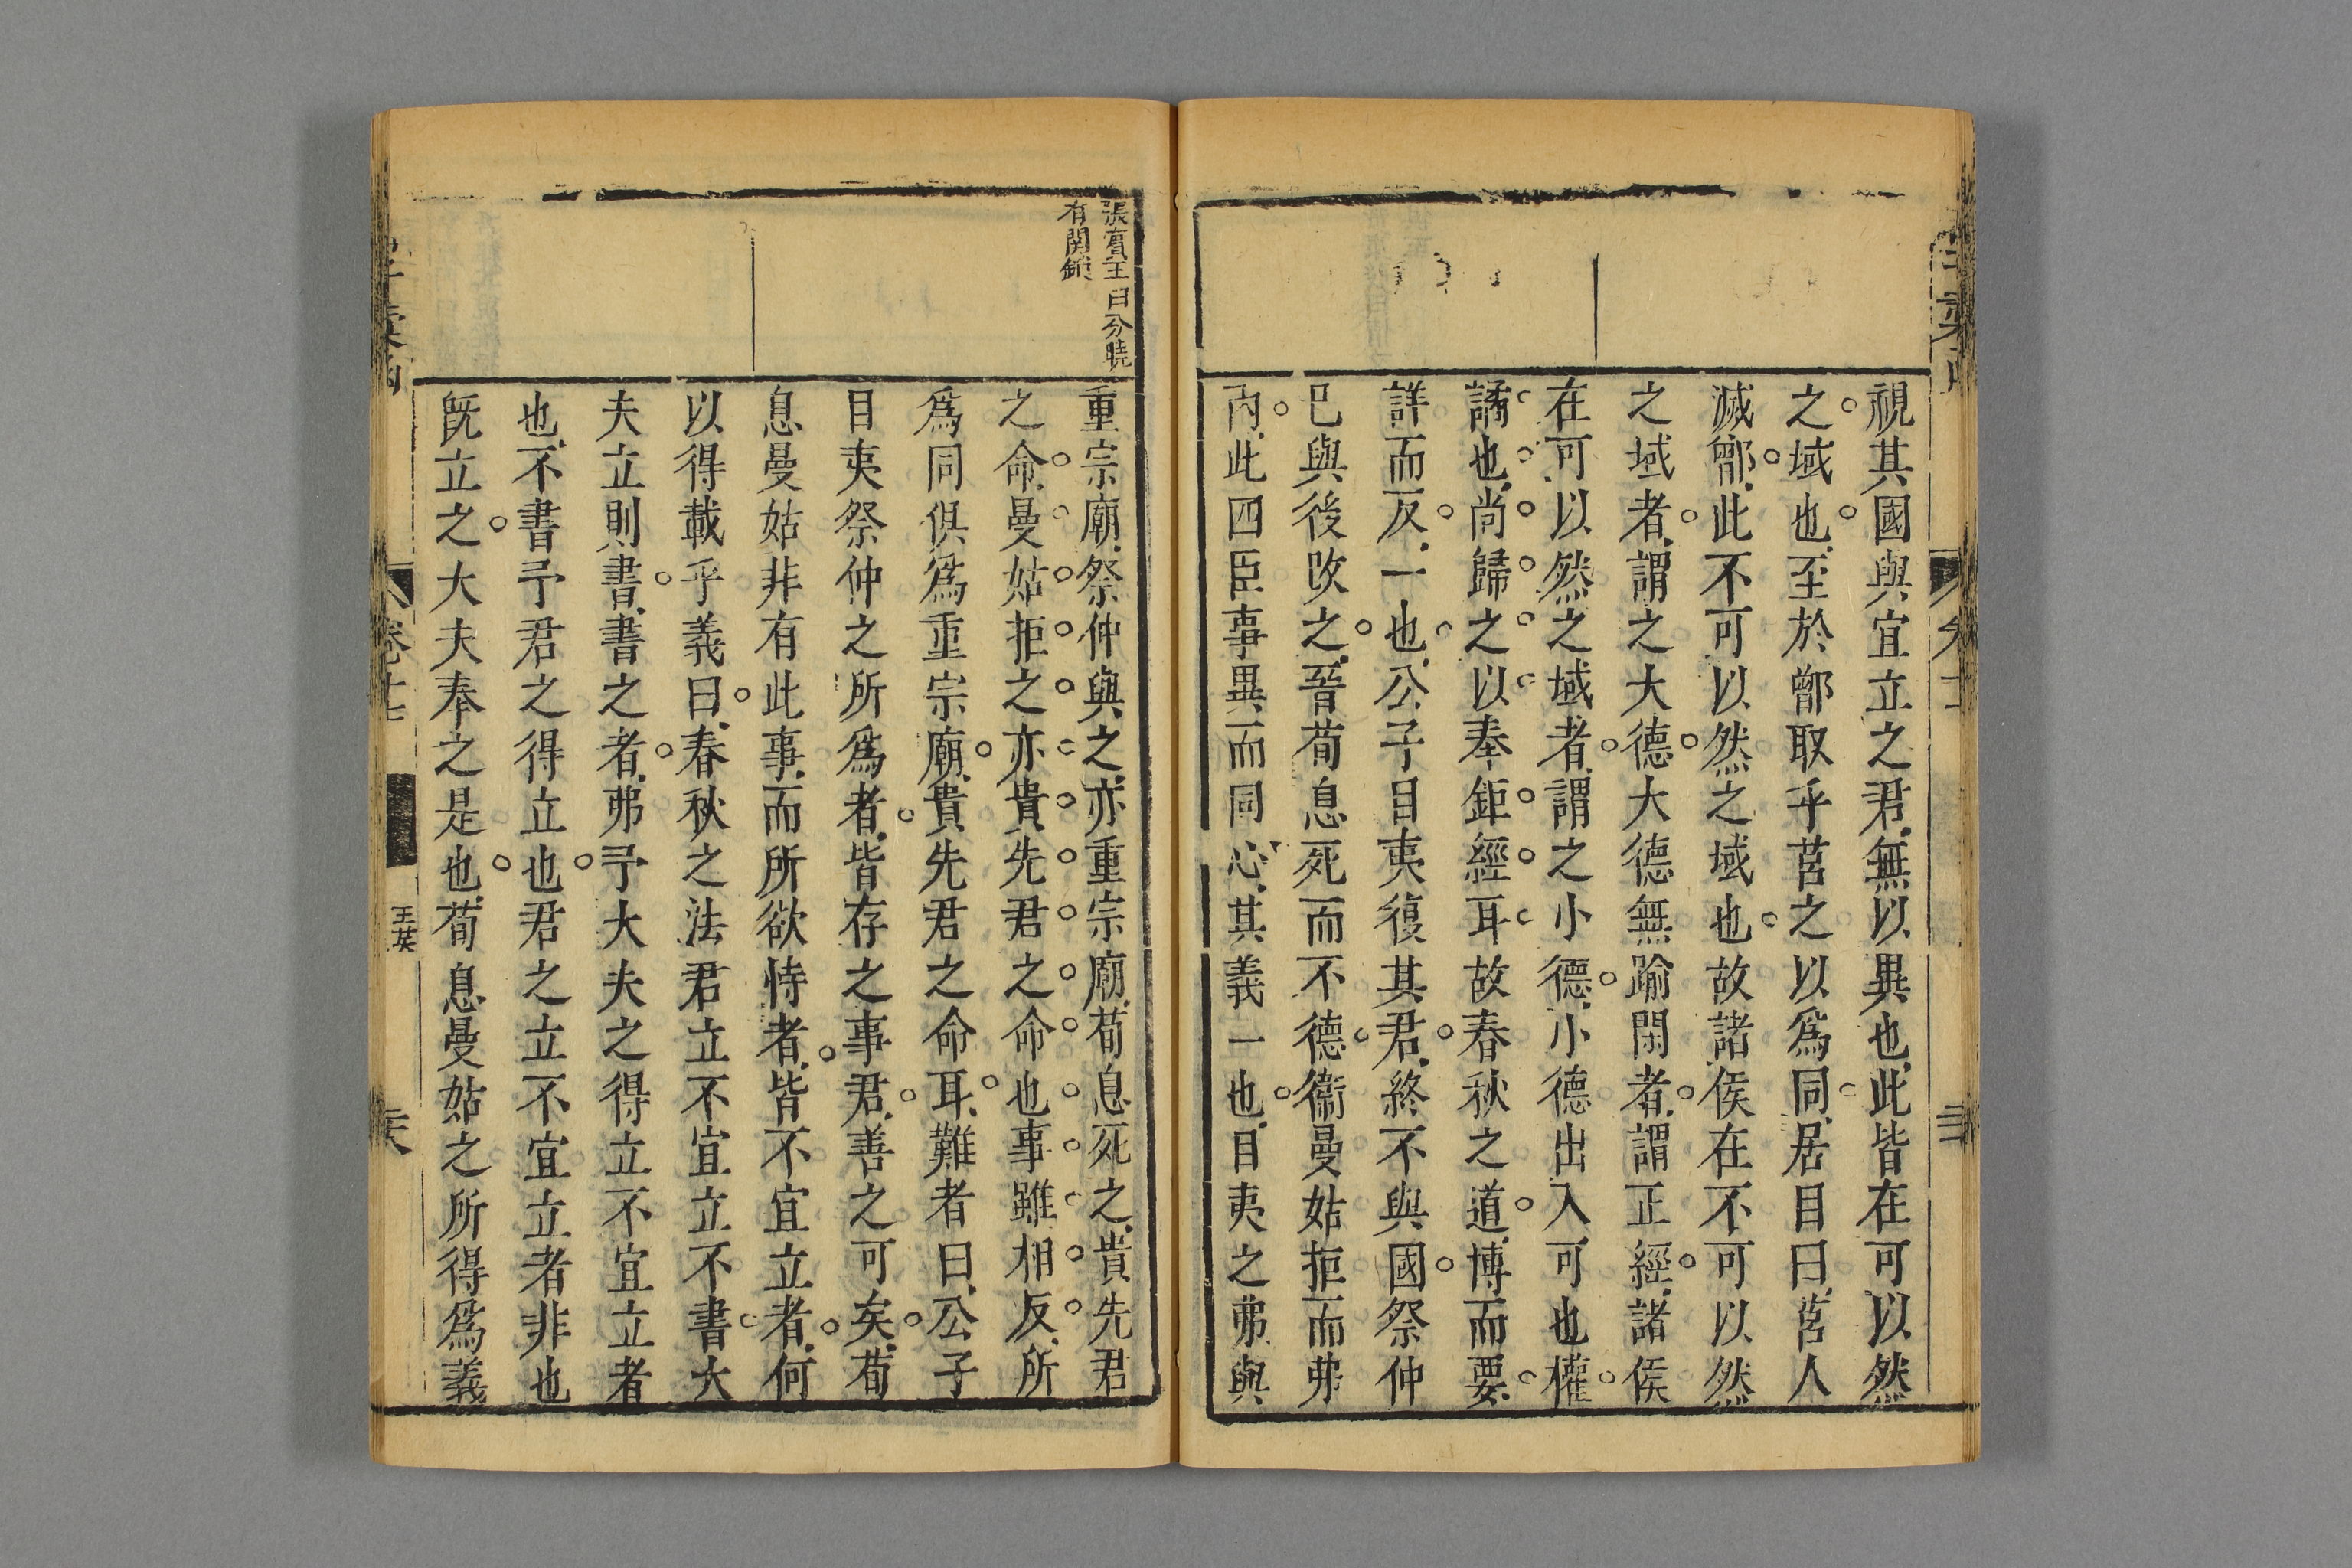 視其國與宜立之君無以異也此皆在可以然
之域也至於鄫取乎莒之以爲同居目曰莒人
滅鄫此不可以然之域也故諸侯在不可以然
之域者謂之大德大德無踰閑者謂正經諸侯
在可以然之域者謂之小德小德出入可也權
譎也尚歸之以奉鉅經耳故春秋之道博而要
詳而反一也公子目夷復其君終不與國祭仲
已與後改之晉荀息死而不德衞曼姑拒而弗
內此四臣事異而同心其義一也目夷之弗與
張賓王曰分曉
有関鎖
重宗廟祭仲與之亦重宗廟荀息死之貴先君
之命曼姑拒之亦貴先君之命也事雖相反所
爲同俱爲重宗廟貴先君之命耳難者曰公子
目夷祭仲之所爲者皆存之事君善之可矣荀
息曼姑非有此事而所欲恃者皆不宜立者何
以得載乎義曰春秋之法君立不宜立不書大
夫立則書書之者弗予大夫之得立不宜立者
也不書予君之得立也君之立不宜立者非也
既立之大夫奉之是也荀息曼姑之所得爲義
卷十七
玉英